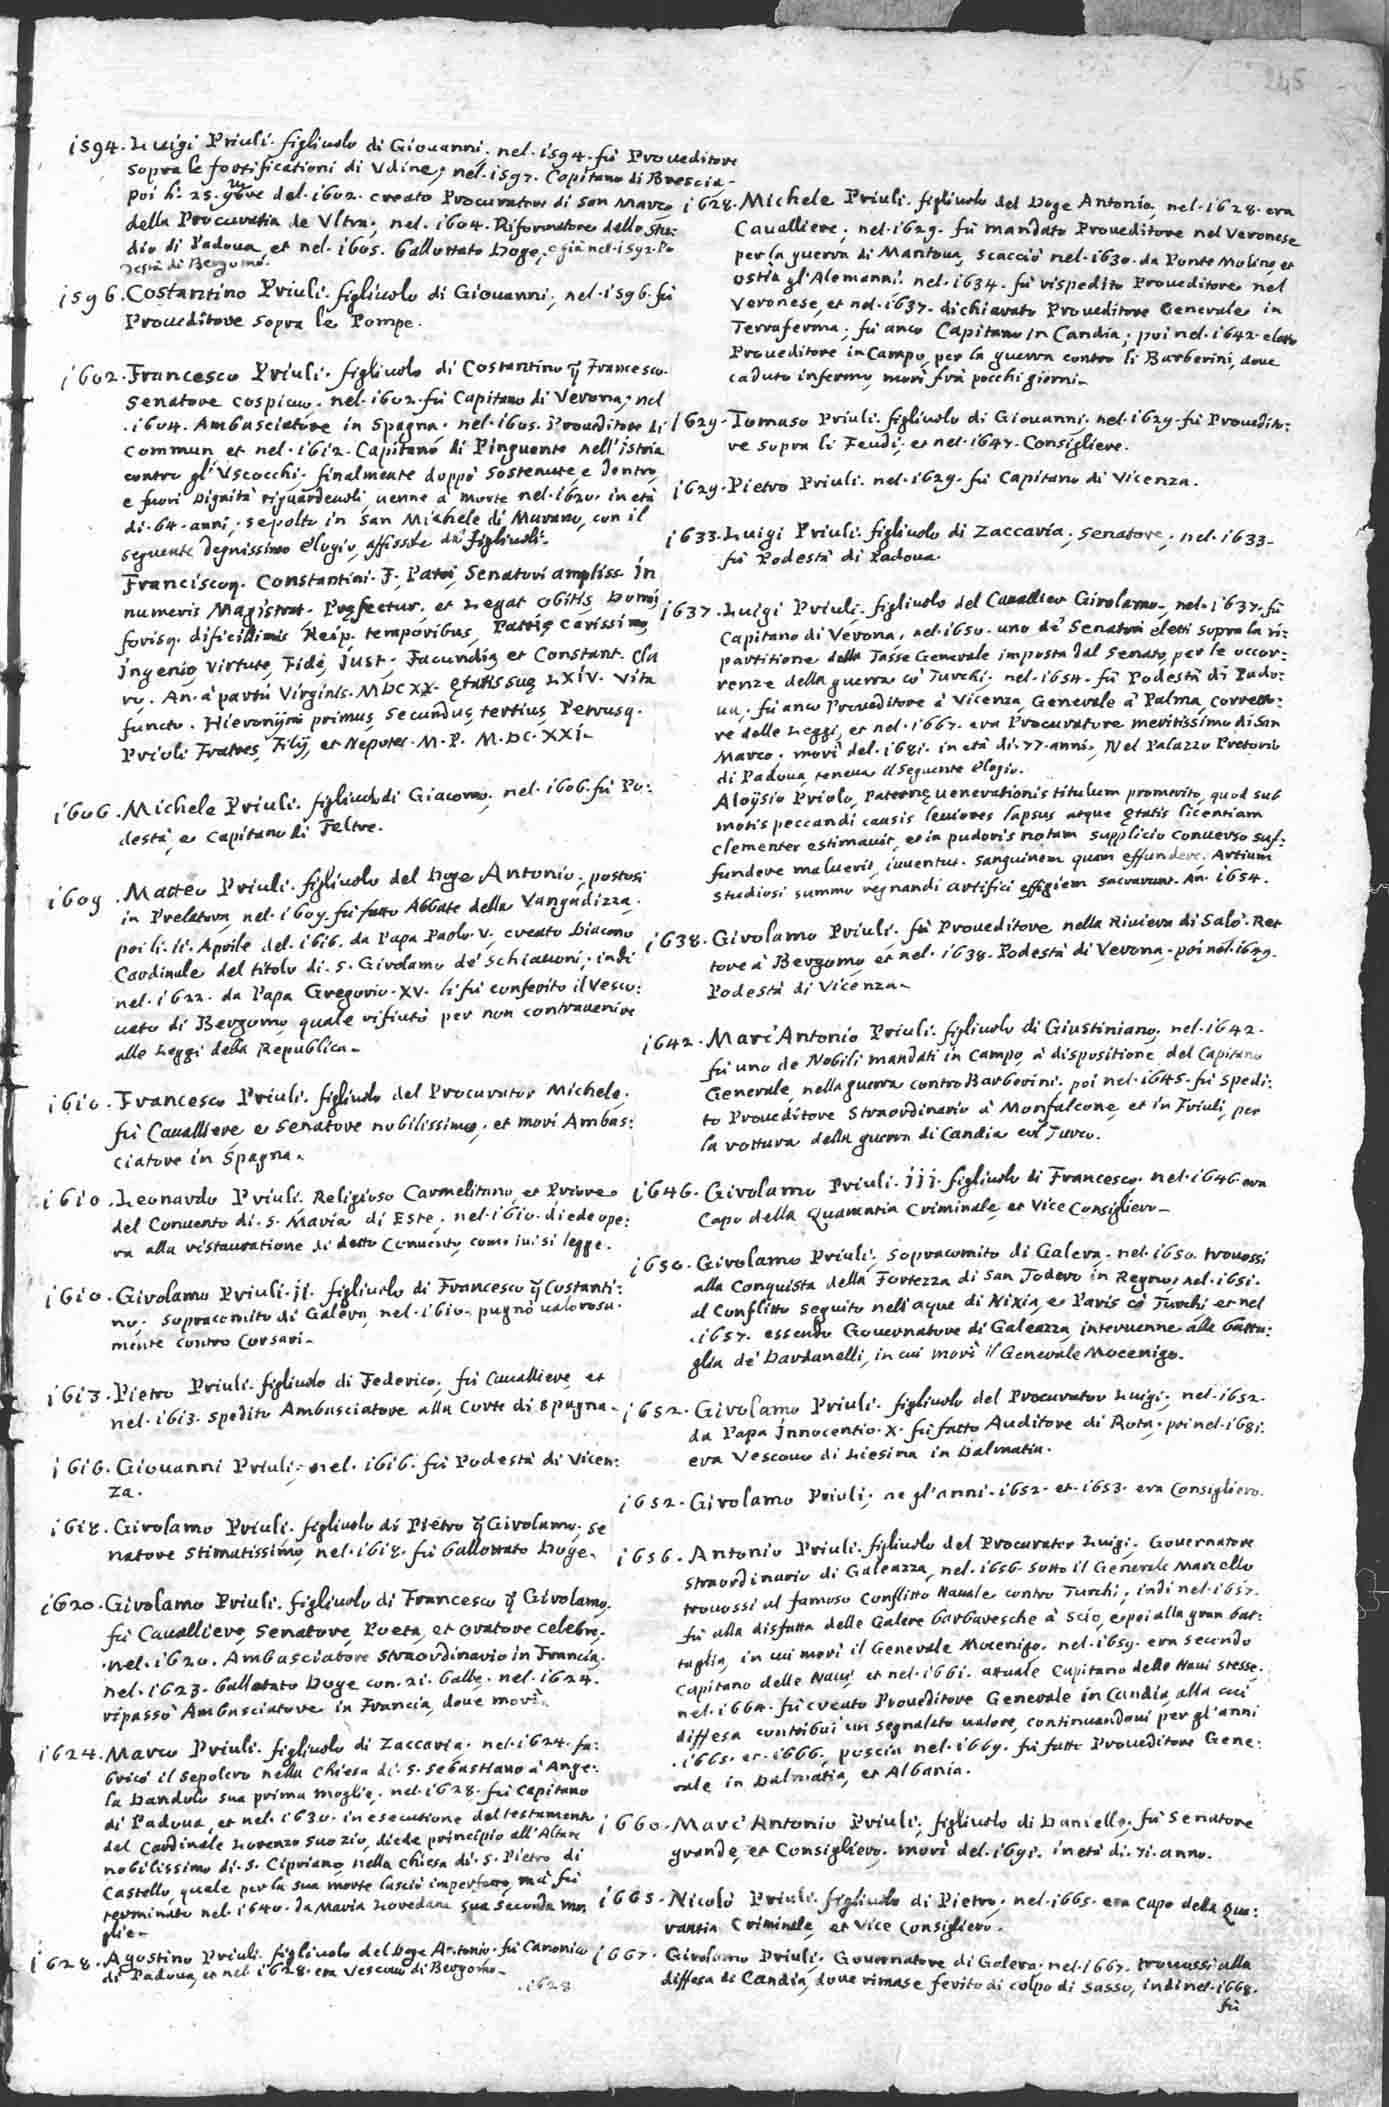 245
1594. Luigi Priuli. figliuolo di Giouanni. nel. 1594. fù Proueditore
sopra le fortificationi di Vdine, nel. 1597. Capitano di Brescia,
poi li. 25. del. 1602. creato Procurator di San Marco
della Procuratia de Vltra, nel. 1604. Riformatore dello Stu:
dio di Padoua, et nel. 1605. ballottato Doge, e già nel. 1592. Po
destà di Bergomo.
1596. Costantino Priuli. figliuolo di Giouanni, nel. 1596. fù
Proueditore sopra le Pompe.
1602. Francesco Priuli. figliuolo di Costantino q̃ Francesco.
Senatore cospicuo. nel. 1602. fù Capitano di Verona, nel
.1604. Ambasciatore in Spagna. nel. 1605. Proueditore di
commun et nel. 1612. Capitanò di Pinguente nell'istria
contro gl'Vscocchi. finalmente doppò sostenute e dentro,
e fuori Dignità riguardeuoli, uenne à morte nel. 1620. in età
di. 64. anni, sepolto in San Michele di Murano, con il
seguente degnissimo elogio, affissole da figliuoli.
Francisco. Constantini. F. Patri, Senatori ampliss. in
numeris Magistrat. Pręfectur, et Legat obitis, Domi
forisq. dificillimis Reip. temporibus, Patrię carissimo,
ingenio, virtute, Fide, just, Facundia et Constant. cla
ro. An. à partu Virginis. MDCXX. ętatis suę LXIV. vita
functo. Hieronymi primus, secundus, tertius, Petrusq.
Prioli Fratres, Filij, et Nepotes. M. P. M.DC.XXI.
1606. Michele Priuli. figliuolo di Giacomo, nel. 1606. fù Po:
destà, e Capitano di Feltre.
1609. Matteo Priuli. figliuolo del Doge Antonio, postosi
in Prelatura, nel. 1609. fù fatto Abbate della Vangadizza,
poi li. 11. Aprile del. 1616. da Papa Paolo. V. creato Diacono
Cardinale del titolo di. S. Girolamo de' Schiauoni; indi
nel. 1622. da Papa Gregorio. XV. li fù conferito il Vesco:
uato di Bergomo, quale rifiutò per non contrauenire
alle Leggi della Republica.
1610. Francesco Priuli. figliuolo del Procurator Michele,
fù Caualliere, e Senatore nobilissimo, et morì Ambas:
ciatore in Spagna.
1610. Leonardo Priuli. Religioso Carmelitano, et Priore
del Conuento di. S. Maria di Este, nel. 1610. diede ope:
ra alla ristauratione di detto Conuento, come iui si legge.
1610. Girolamo Priuli. ii. figliuolo di Francesco q̃ Costanti:
no, sopracomito di Galera, nel. 1610. pugnò ualorosa:
mente contro Corsari.
1613. Pietro Priuli. figliuolo di Federico, fù Caualliere, et
nel. 1613. spedito Ambasciatore alla Corte di Spagna.
1616. Giouanni Priuli, nel. 1616. fù Podestà di Vicen:
za.
1618. Girolamo Priuli. figliuolo di Pietro q̃ Girolamo, se
natore stimatissimo, nel. 1618. fù ballottato Doge.
1620. Girolamo Priuli. figliuolo di Francesco q̃ Girolamo,
fù Caualliere, Senatore, Poeta, et Oratore celebre,
.nel. 1620. Ambasciatore straordinario in Francia,
nel. 1623. ballotato Doge con. 21. balle. nel. 1624.
ripassò Ambasciatore in Francia, doue morì.
1624. Marco Priuli. figliuolo di Zaccaria. nel. 1624. fa:
bricò il sepolcro nella Chiesa di. S. Sebastiano à Ange:
la Dandolo sua prima moglie, nel. 1628. fù Capitano
di Padoua, et nel. 1630. in esecutione del testamento
del Cardinale Lorenzo suo zio, diede principio all'Altare
nobilissimo di. S. Cipriano, nella Chiesa di. S. Pietro di
Castello, quale per la sua morte lasciò imperfetto, mà fù
terminato nel. 1640. da Maria Loredana sua seconda mo
glie.
1628. Agostino Priuli. figliuolo del Doge Antonio. fù Canonico
di Padoua, et nel. 1628. era Vescouo di Bergomo.
.1628
1628. Michele Priuli. figliuolo del Doge Antonio, nel. 1628. era
Caualliere, nel. 1629. fù mandato Proueditore nel Veronese
per la guerra di Mantoua, scacciò nel. 1630. da Ponte Molino, et
ostia gl'Alemanni. nel. 1634. fù rispedito Proueditore nel
Veronese, et nel. 1637. dichiarato Proueditore Generale in
Terraferma, fù anco Capitano in Candia, poi nel. 1642. eletto
Proueditore in Campo, per la guerra contro li Barberini, doue
caduto infermo, morì frà pocchi giorni.
1629. Tomaso Priuli. figliuolo di Giouanni. nel. 1629. fù Prouedito:
re sopra li Feudi, et nel. 1647. Consigliere.
1629. Pietro Priuli. nel. 1629. fù Capitano di Vicenza.
1633. Luigi Priuli. figliuolo di Zaccaria, Senatore, nel. 1633.
fù Podestà di Padoua.
1637. Luigi Priuli. figliuolo del Caualliere Girolamo, nel. 1637. fù
Capitano di Verona, nel. 1650. uno de' Senatori eletti sopra la ri:
partitione della Tasse Generale imposta dal Senato, per le occor:
renze della guerra co' Turchi, nel. 1654. fù Podestà di Pado:
ua, fù anco Proueditore à Vicenza, Generale à Palma, corretto:
re delle Leggi, et nel. 1667. era Procuratore meritissimo di San
Marco, morì del. 1681. in età di. 77. anni, Nel Palazzo Pretorio
di Padoua, teneua il seguente elogio.
Aloÿsio Priolo, Paternę uenerationis titulum promerito, quod sub
motis peccandi causis leuiores lapsus atque ętatis licentiam
clementer estimauit, et in pudoris notam supplicio conuerso suf:
fundere maluerit, iuuentus. sanguinem quam effundere. Artium
studiosi summo regnandi artifici effigiem sacrarunt. An. 1654.
1638. Girolamo Priuli. fù Proueditore, nella Riuiera di Salò. Ret
tore à Bergomo, et nel. 1638. Podestà di Verona, poi nel. 1649.
Podestà di Vicenza.
1642. Marc'Antonio Priuli. figliuolo di Giustiniano, nel. 1642.
fù uno de Nobili mandati in Campo, à dispositione del Capitano
Generale, nella guerra contro Barberini. poi nel. 1645. fù spedi:
to Proueditore straordinario à Monfalcone, et in Friuli, per
la rottura della guerra di Candia col Turco.
1646. Girolamo Priuli. iii. figliuolo di Francesco, nel. 1646. era
Capo della Quarantia Criminale, et Vice Consigliero.
1650. Girolamo Priuli, sopracomito di Galera, nel. 1650. trouossi
alla Conquista della Fortezza di San Todero in Regno, nel. 1651.
al Conflitto seguito nell'aque di Nixia, e Paris cò Turchi et nel
.1657. essendo Gouernatore di Galeazza, interuenne alla batta:
glia de' Dardanelli, in cui morì il Generale Mocenigo.
1652. Girolamo Priuli. figliuolo del Procurator Luigi, nel. 1652.
da Papa Innocentio. X. fù fatto Auditore di Rota, poi nel. 1681.
era Vescouo di Liesina in Dalmatia.
1652. Girolamo Priuli, ne gl'anni. 1652. et. 1653. era Consigliero.
1656. Antonio Priuli. figliuolo del Procurator Luigi. Gouernatore
straordinario di Galeazza, nel. 1656. sotto il Generale Marcello
trouossi al famoso Conflitto Nauale contro Turchi, indi nel. 1657.
fù alla disfatta delle Galere barbaresche à Scio, e poi alla gran bat:
taglia, in cui morì il Generale Mocenigo. nel. 1659. era secondo
Capitano delle Naui, et nel. 1661. attuale Capitano delle Naui stesse.
nel. 1664. fù creato Proueditore Generale in Candia, alla cui
diffesa contribuì con segnalato ualore, continuandoui per gl'anni
.1665. et. 1666. poscia nel. 1669. fù fatto Proueditore Gene:
rale in Dalmatia, et Albania.
1660. Marc'Antonio Priuli, figliuolo di Daniello, fù Senatore
grande, et Consigliero, morì del. 1691. in età di. 71. anno.
1665. Nicolò Priuli. figliuolo di Pietro, nel. 1665. era Capo della Qua:
rantia Criminale, et Vice Consigliero.
1667. Girolamo Priuli, Gouernatore di Galera. nel. 1667. trouossi alla
diffesa di Candia, doue rimase ferito di colpo di sasso, indi nel. 1668.
fù